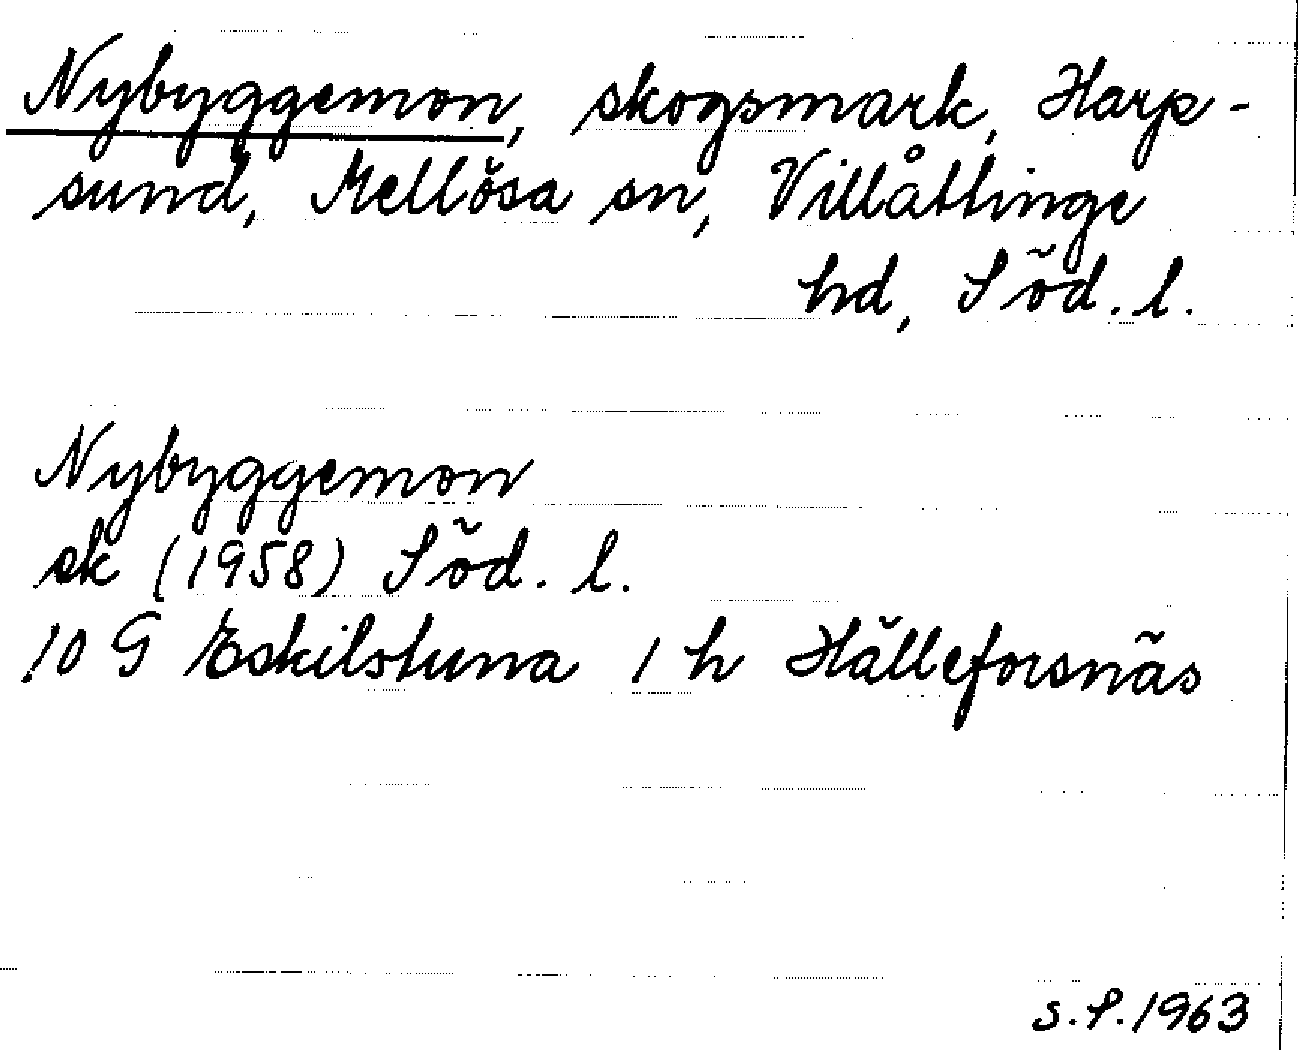 Nybyggemon, skogsmark, Harp-
sund, Mellösa sn, Villåttinge
hd, Söd. l.
Nybyggemon
sk (1958) Söd. l.
10 G Eskilstuna 1 h Hälleforsnäs
S.P. 1963